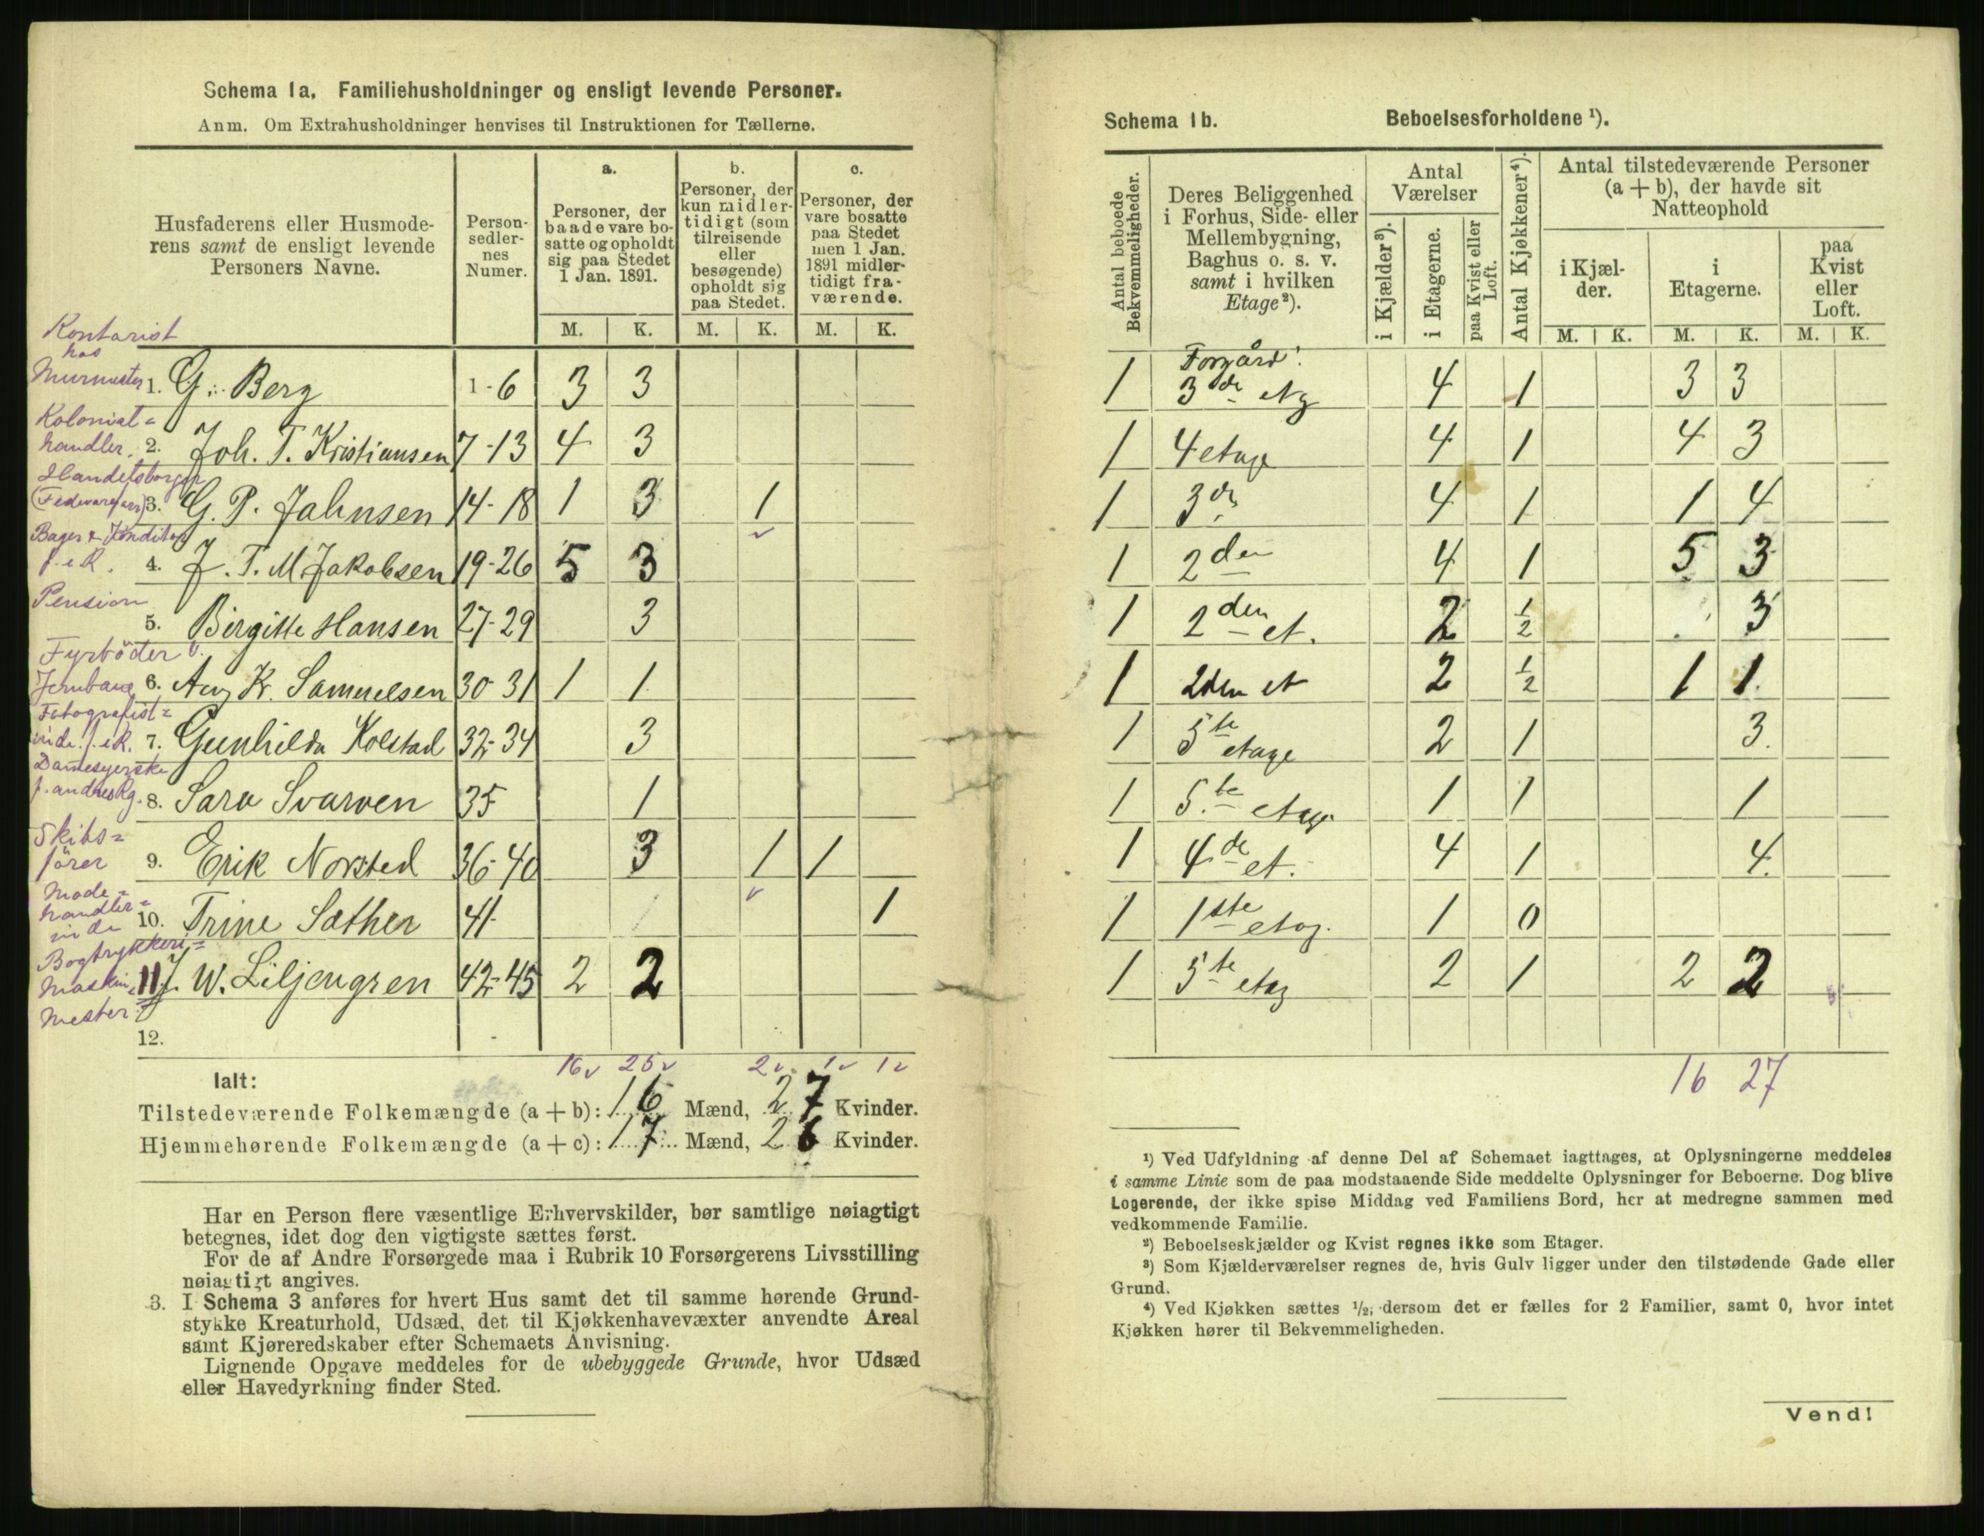 Schema 1a. Familiehusholdninger og ensligt levende Personer.
Anm. Om Extrahusholdninger henvises til Instruktionen for Tællerne.
Husfaderens eller Husmode-
rens samt de ensligt levende
Personers Navne.
Person-
sedler-
nes
Numer.
a.
Personer, der
baade vare bo-
satte og opholdt
sig paa Stedet
1 Jan. 1891.
b.
Personer, der
kun midler-
tidigt (som
tilreisende
eller
besøgende)
opholdt sig
paa Stedet.
c.
Personer, der
vare bosatte
paa Stedet
men 1 Jan.
1891 midler-
tidigt fra-
værende.
M. K. M. K. M. K.
Kontorist
hos
Murmester 1. G. Berg 1-6 3 3
Kolonial=
handler. 2. Joh. T. Kristiansen 7-13 4 3
Handelsborger
(Fedevareforr) 3. G. P. Jahnsen 14-18 1 3 1
Bager & Konditor
f. e R. 4. J. T. M. Jakobsen 19-26 5 3
Pension
5. Birgitte Hansen 27-29 3
Fyrbøder v.
Jernbane 6. Aug K. Samuelsen 30-31 1 1
Fotografist=
inde f. e R. 7. Gunhilda Kolstad 32-34 3
Damesyerske
f. andres Rg. 8. Sara Svarven 35 1
Skibs=
fører 9. Erik Norsted 36-40 3 1 1
Mode=
handler=
inde 10. Trine Sæther 41 1
Bogtrykkeri=
Maskin 11 J. W. Liljengren 42-45 2 2
mester
12.
16 25 2 1 1
Ialt:
Tilstedeværende Folkemængde (a + b): 16 Mænd, 27 Kvinder.
Hjemmehørende Folkemængde (a + c): 17 Mænd, 26 Kvinder.
Har en Person flere væsentlige Erhvervskilder, bør samtlige nøiagtigt
betegnes, idet dog den vigtigste sættes først.
For de af Andre Forsørgede maa i Rubrik 10 Forsørgerens Livsstilling
nøiagtigt angives.
3. I Schema 3 anføres for hvert Hus samt det til samme hørende Grund-
stykke Kreaturhold, Udsæd, det til Kjøkkenhavevæxter anvendte Areal
samt Kjøreredskaber efter Schemaets Anvisning.
Lignende Opgave meddeles for de ubebyggede Grunde, hvor Udsæd
eller Havedyrkning finder Sted.
Schema 1b. Beboelsesforholdene ¹).
Antal beboede
Bekvemmeligheder.
Deres Beliggenhed
i Forhus, Side- eller
Mellembygning,
Baghus o. s. v.
samt i hvilken
Etage²).
Antal
Værelser
i Kjælder³).
i Etagerne.
paa Kvist eller
Loft.
Antal Kjøkkener⁴).
Antal tilstedeværende Personer
(a + b), der havde sit
Natteophold
i Kjæl-
der.
i
Etagerne.
paa
Kvist
eller
Loft.
M. K. M. K. M. K.
Forgård
1 3de etg 4 1 3 3
1 4 etage 4 1 4 3
1 3de 4 1 1 4
1 2den 4 1 5 3
1 2den et. 2 ½ 3
1 2den et 2 ½ 1 1
1 5te etage 2 1 3.
1 5te etage 1 1 1
1 4de et. 4 1 4.
1 1ste etag. 1 0
1 5te etag 2 1 2 2
16 27
¹) Ved Udfyldning af denne Del af Schemaet iagttages, at Oplysningerne meddeles
i samme Linie som de paa modstaaende Side meddelte Oplysninger for Beboerne. Dog blive
Logerende, der ikke spise Middag ved Familiens Bord, her at medregne sammen med
vedkommende Familie.
²) Beboelseskjælder og Kvist regnes ikke som Etager.
³) Som Kjælderværelser regnes de, hvis Gulv ligger under den tilstødende Gade eller
Grund.
⁴) Ved Kjøkken sættes ½, dersom det er fælles for 2 Familier, samt 0, hvor intet
Kjøkken hører til Bekvemmeligheden.
Vend!